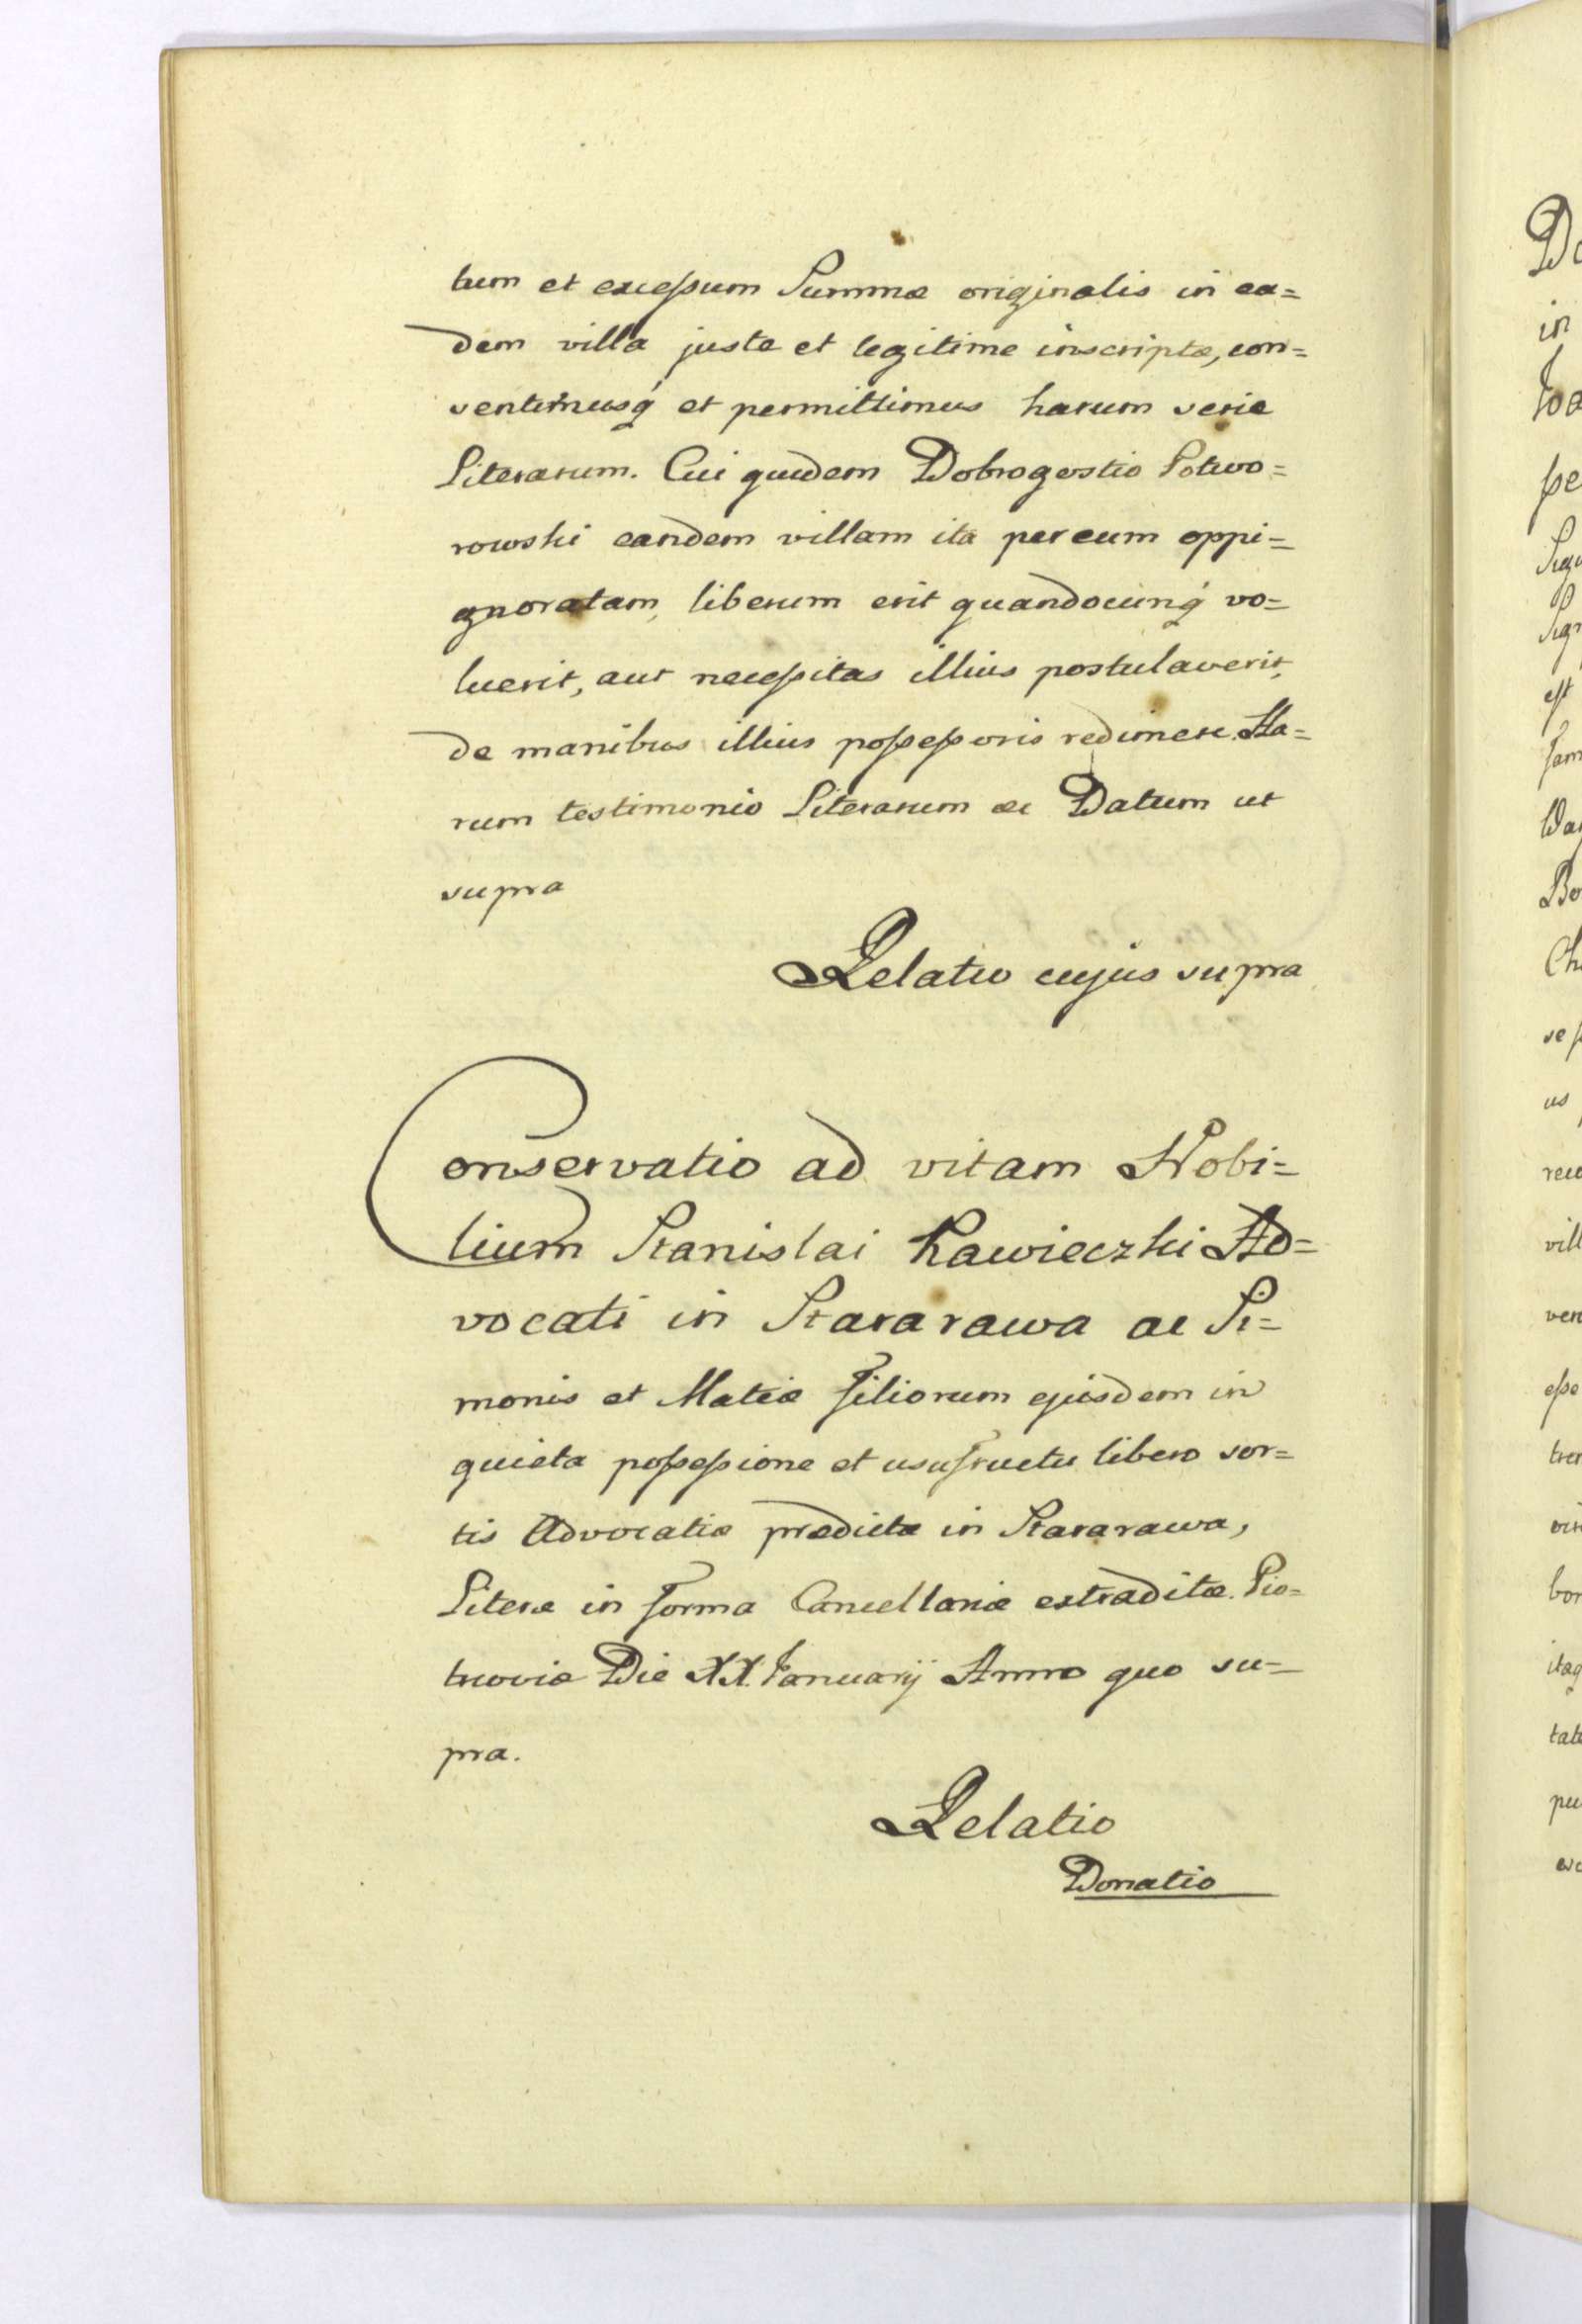 tum et excessum Summæ originalis in ea=
dem villa juste et legitime inscriptæ, con=
sentimusq́ et permittimus harum serie
Literarum. Cui quidem Dobrogostio Potwo=
rowski eandem villam ita per eum oppi=
gnoratam, liberum erit quandocunq́ vo=
luerit, aut necessitas illius postulaverit,
de manibus illius possessoris redimere. Ha=
rum testimonio Literarum &c Datum ut
supra
Relatio cujus supra
Conservatio ad vitam Nobi=
lium Stanislai Rawieczki Ad=
vocati in Stararawa ac Si=
monis et Matiæ filiorum ejusdem in
quieta possessione et usufructu libero sor=
tis Advocatiæ prædictæ in Stararawa,
Literæ in forma Cancellariæ extraditæ. Pio=
trcoviæ Die XX. Januarij Anno quo su=
pra.
Relatio
Donatio
Do
in
pe
est
fam
Bo
se
us
vill
ven
esse
bor
itaq
tate
pu